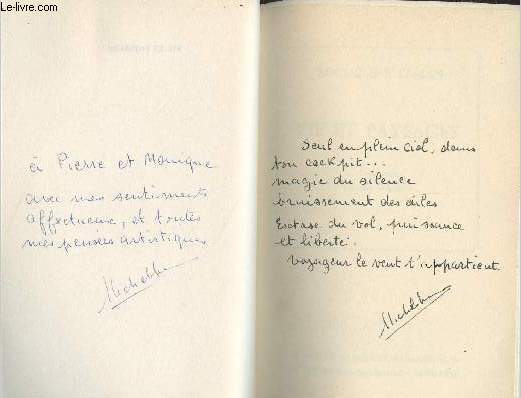 Le-livre.com
à Pierre et Monique
avec mes sentiments
affectueux, et toutes
mes pensées artistiques
Seul en plein ciel, dans
ton cockpit...
magie du silence
bruissement des ailes
Extase du vol, puissance
et liberté.
Voyageur le vent t'appartient